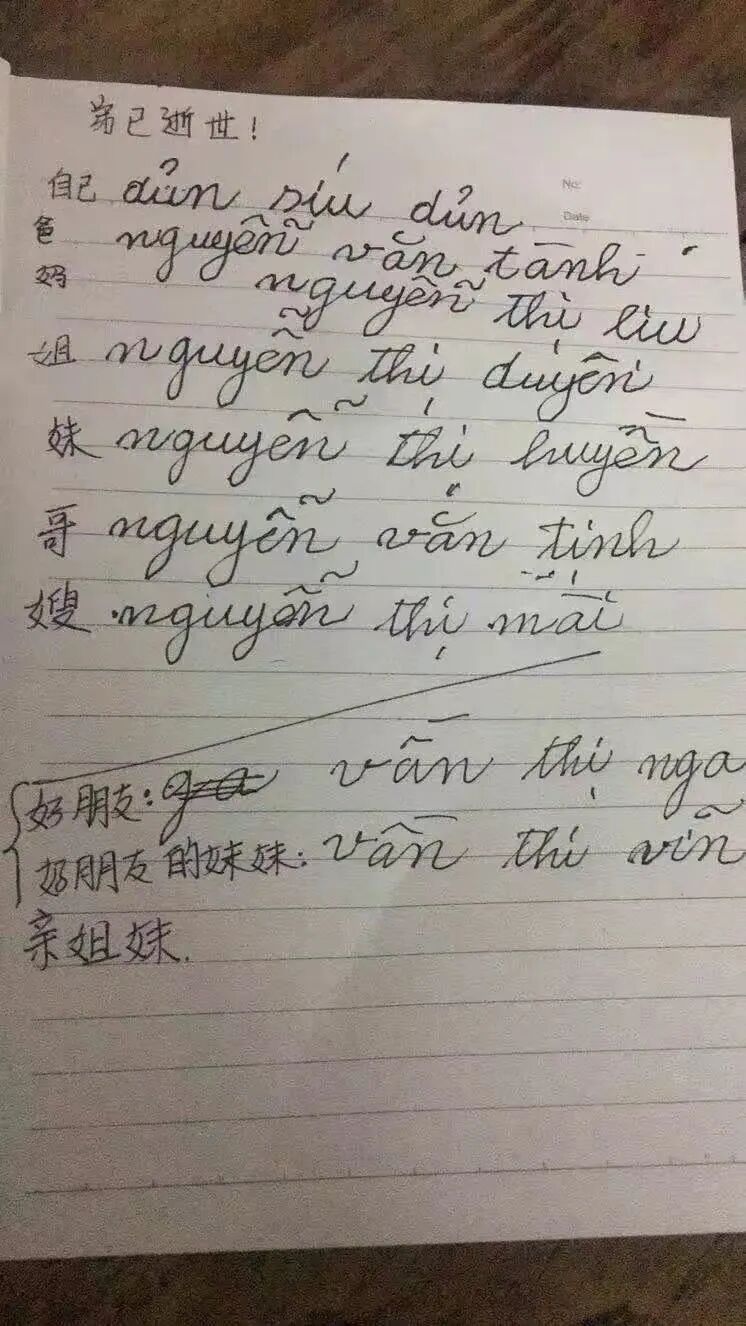 弟已逝世!
No:
自己 dủn síu dủn
Date
爸 nguyễn văn tành
妈 nguyễn thị liu
姐 nguyễn thị duyên
妹 nguyễn thị huyền
哥 nguyễn văn tịnh
嫂 nguyễn thị mài
好朋友: vân thị nga
好朋友的妹妹: vân thị vin
亲姐妹.